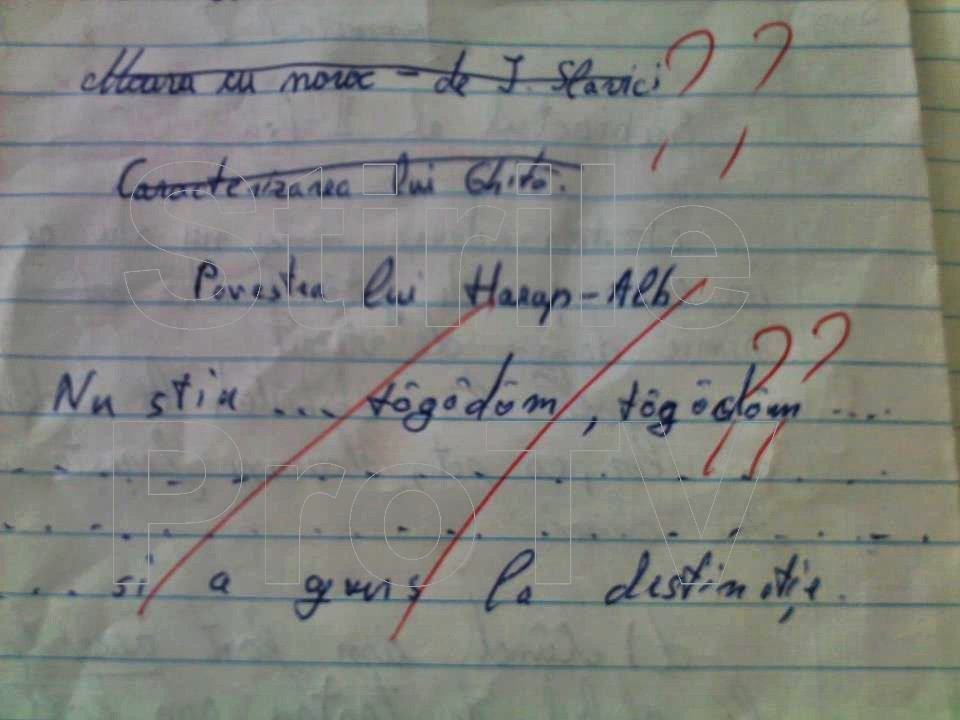 Moara cu noroc - de I. Slavici ??
Caracterizarea lui Ghiță.
Povestea lui Harap-Alb
Nu stiu ... tôgôdôm, tôgôdôm .... ??
... si a ajuns la destinație.
Stirile
ProTV